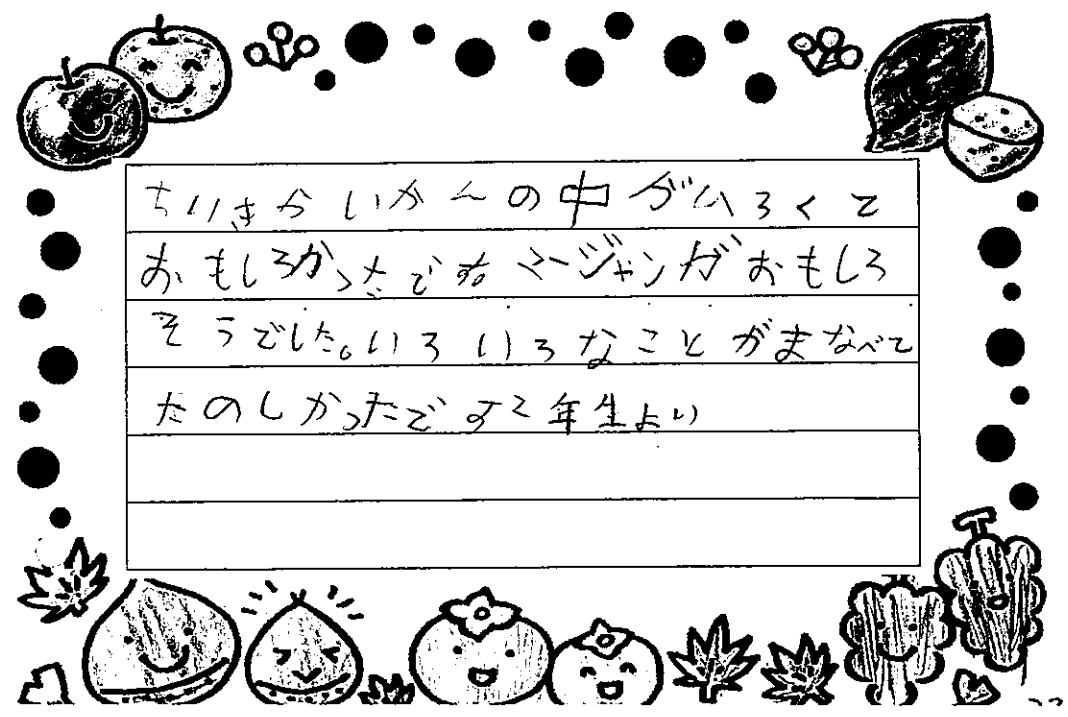 ちいきかいかんの中がひろくて
おもしろかったですマージャンがおもしろ
そうでした。いろいろなことがまなべて
たのしかったです2年生より